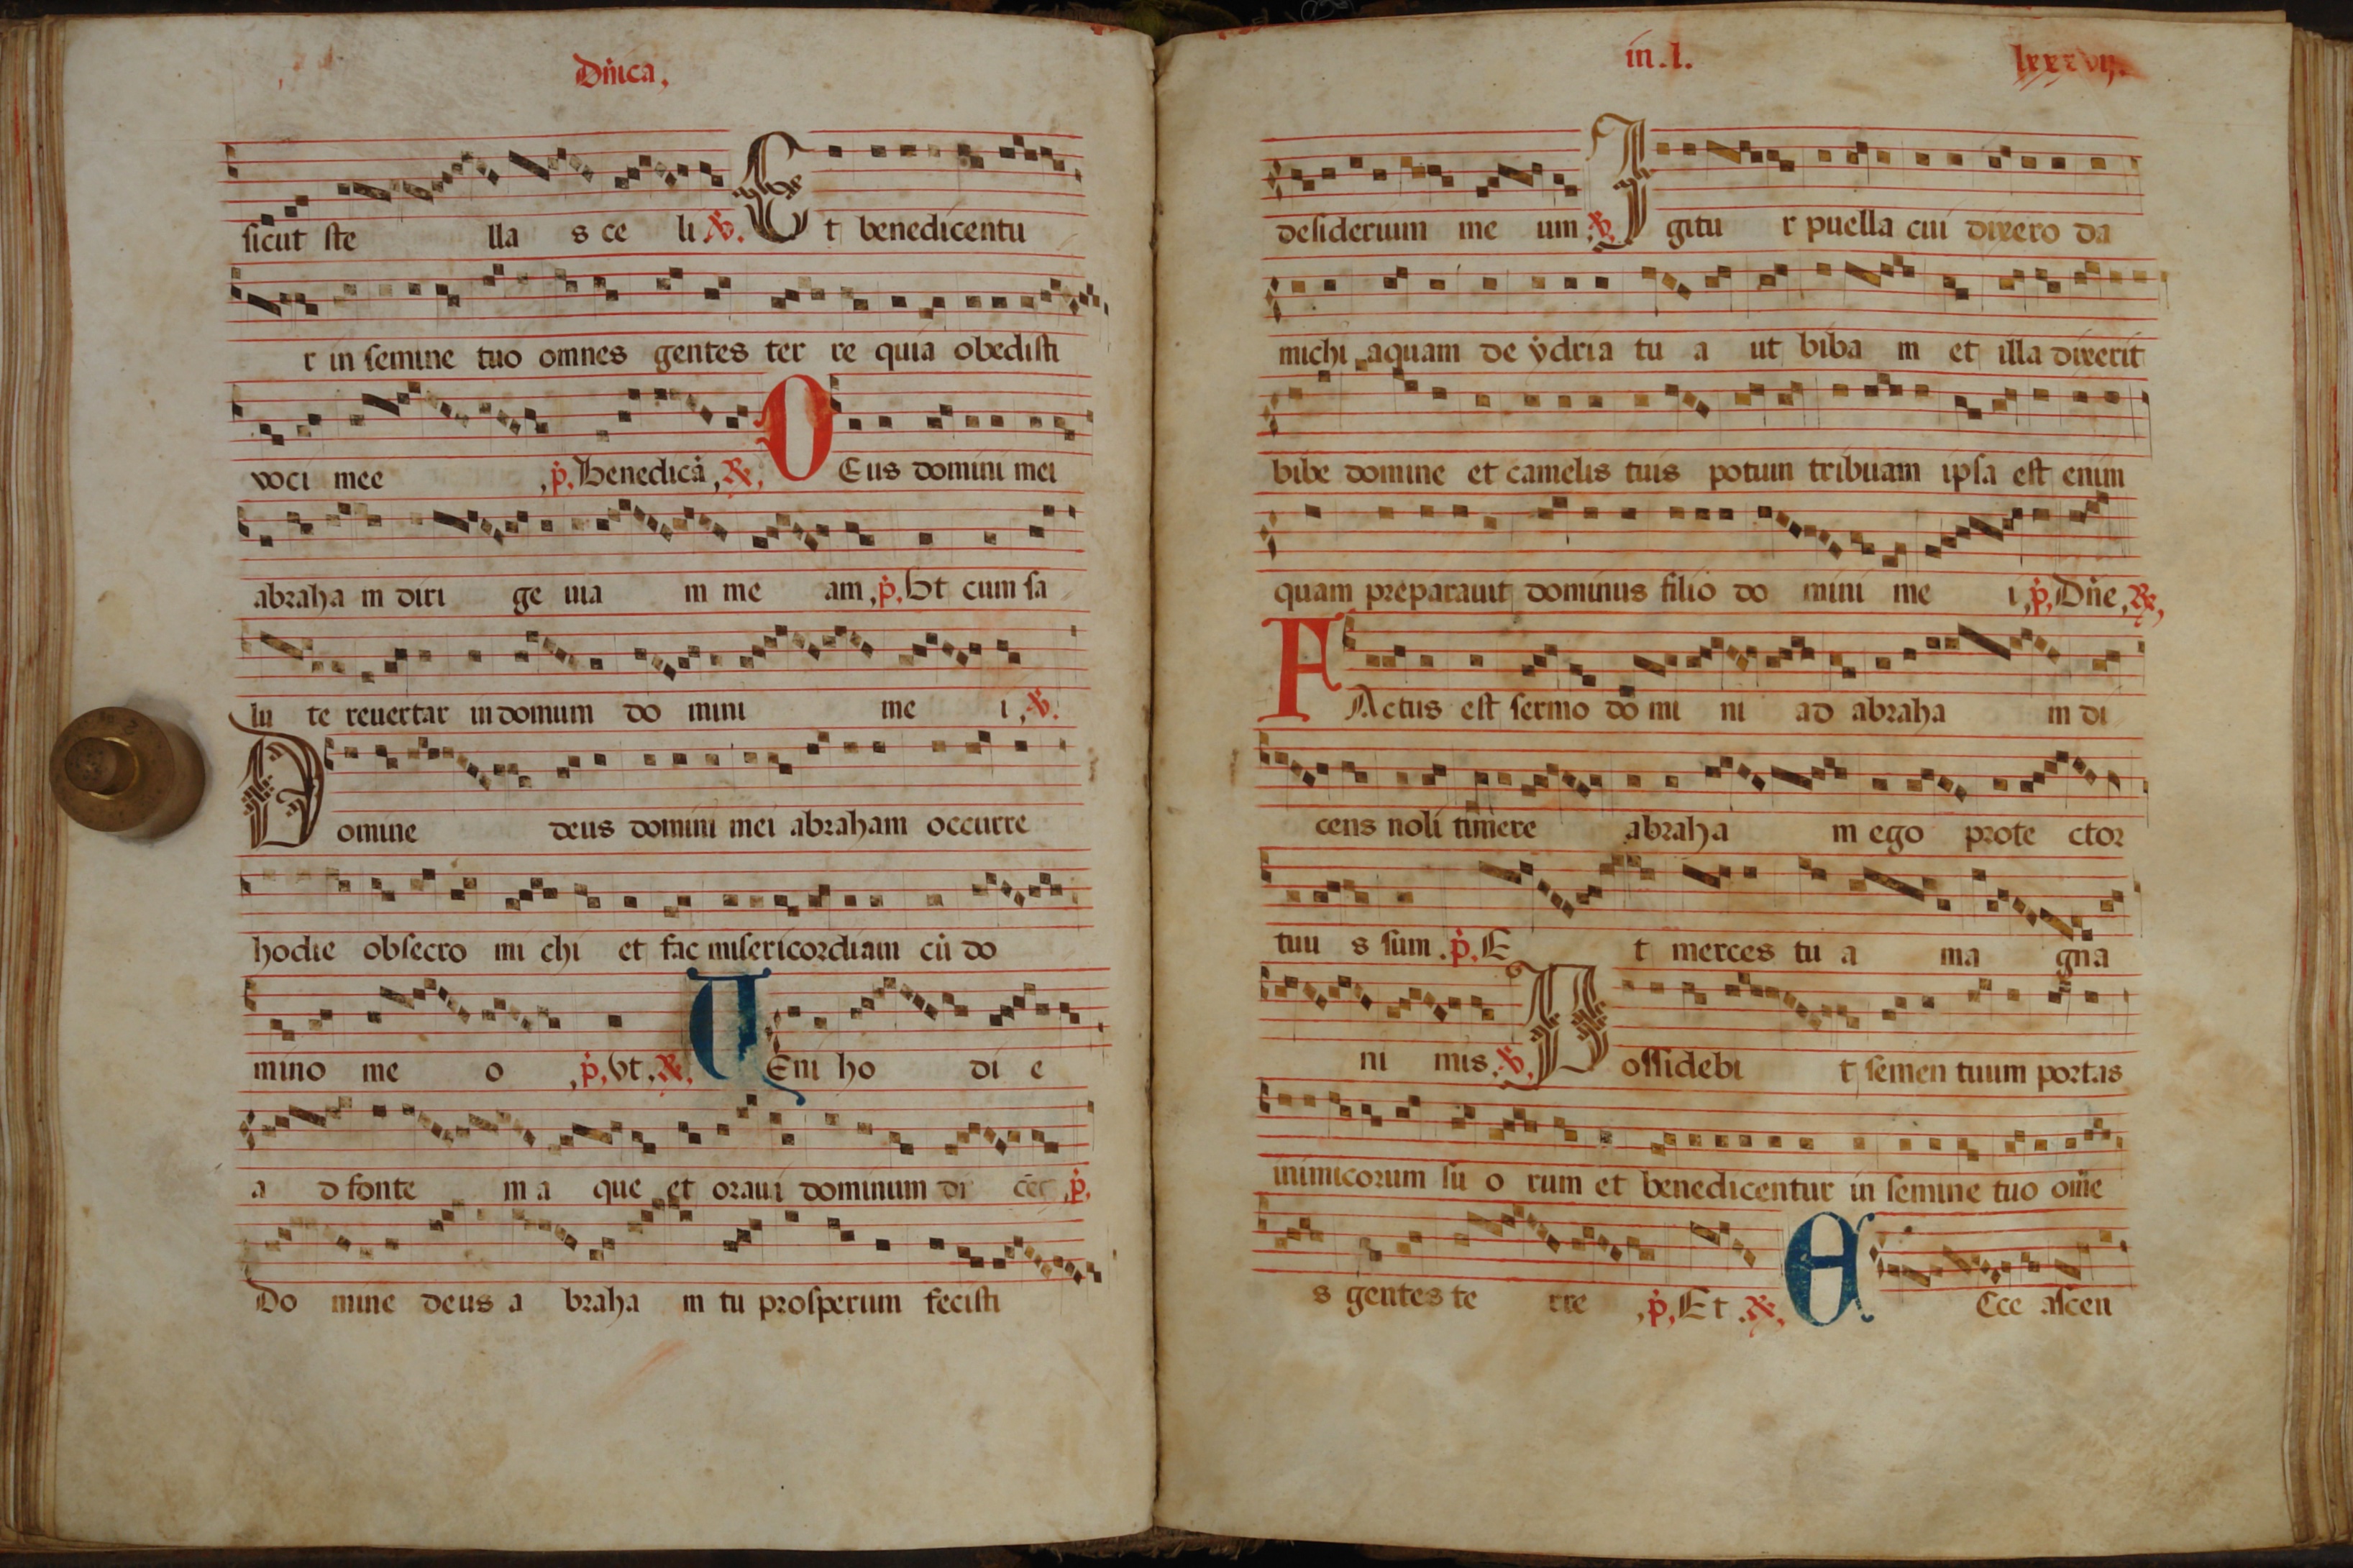 Dn̄ica,
sicut ste lla s ce li ℣. Et benedicentu
r in semine tuo omnes gentes ter re quia obedisti
voci mee ,p̄. Benedicā, ℟, DEus domini mei
abraha m diri ge uia m me am ,p̄. Vt cum sa
lu te reuertar in domum do mini me i, ℣.
Domine deus domini mei abraham occurre
hodie obsecro mi chi et fac misericordiam cū do
mino me o ,p̄. Vt. ℟, VEni ho di e
a d fonte m a que et oraui dominum di cēs ,p̄.
Do mine deus a braha m tu prosperum fecisti
in.l. lxxxvij.
desiderium me um ℣. Igitu r puella cui dixero da
michi aquam de ydria tu a ut biba m et illa dixerit
bibe domine et camelis tuis potum tribuam ipsa est enim
quam preparauit dominus filio do mini me i ,p̄. Dn̄e, ℟,
FActus est sermo do mi ni ad abraha m di
cens noli timere abraha m ego prote ctor
tuu s sum .p̄. E t merces tu a ma gna
ni mis. ℣. Possidebi t semen tuum portas
inimicorum su o rum et benedicentur in semine tuo om̄e
s gentes te rre ,p̄. Et .℟, ECce ascen